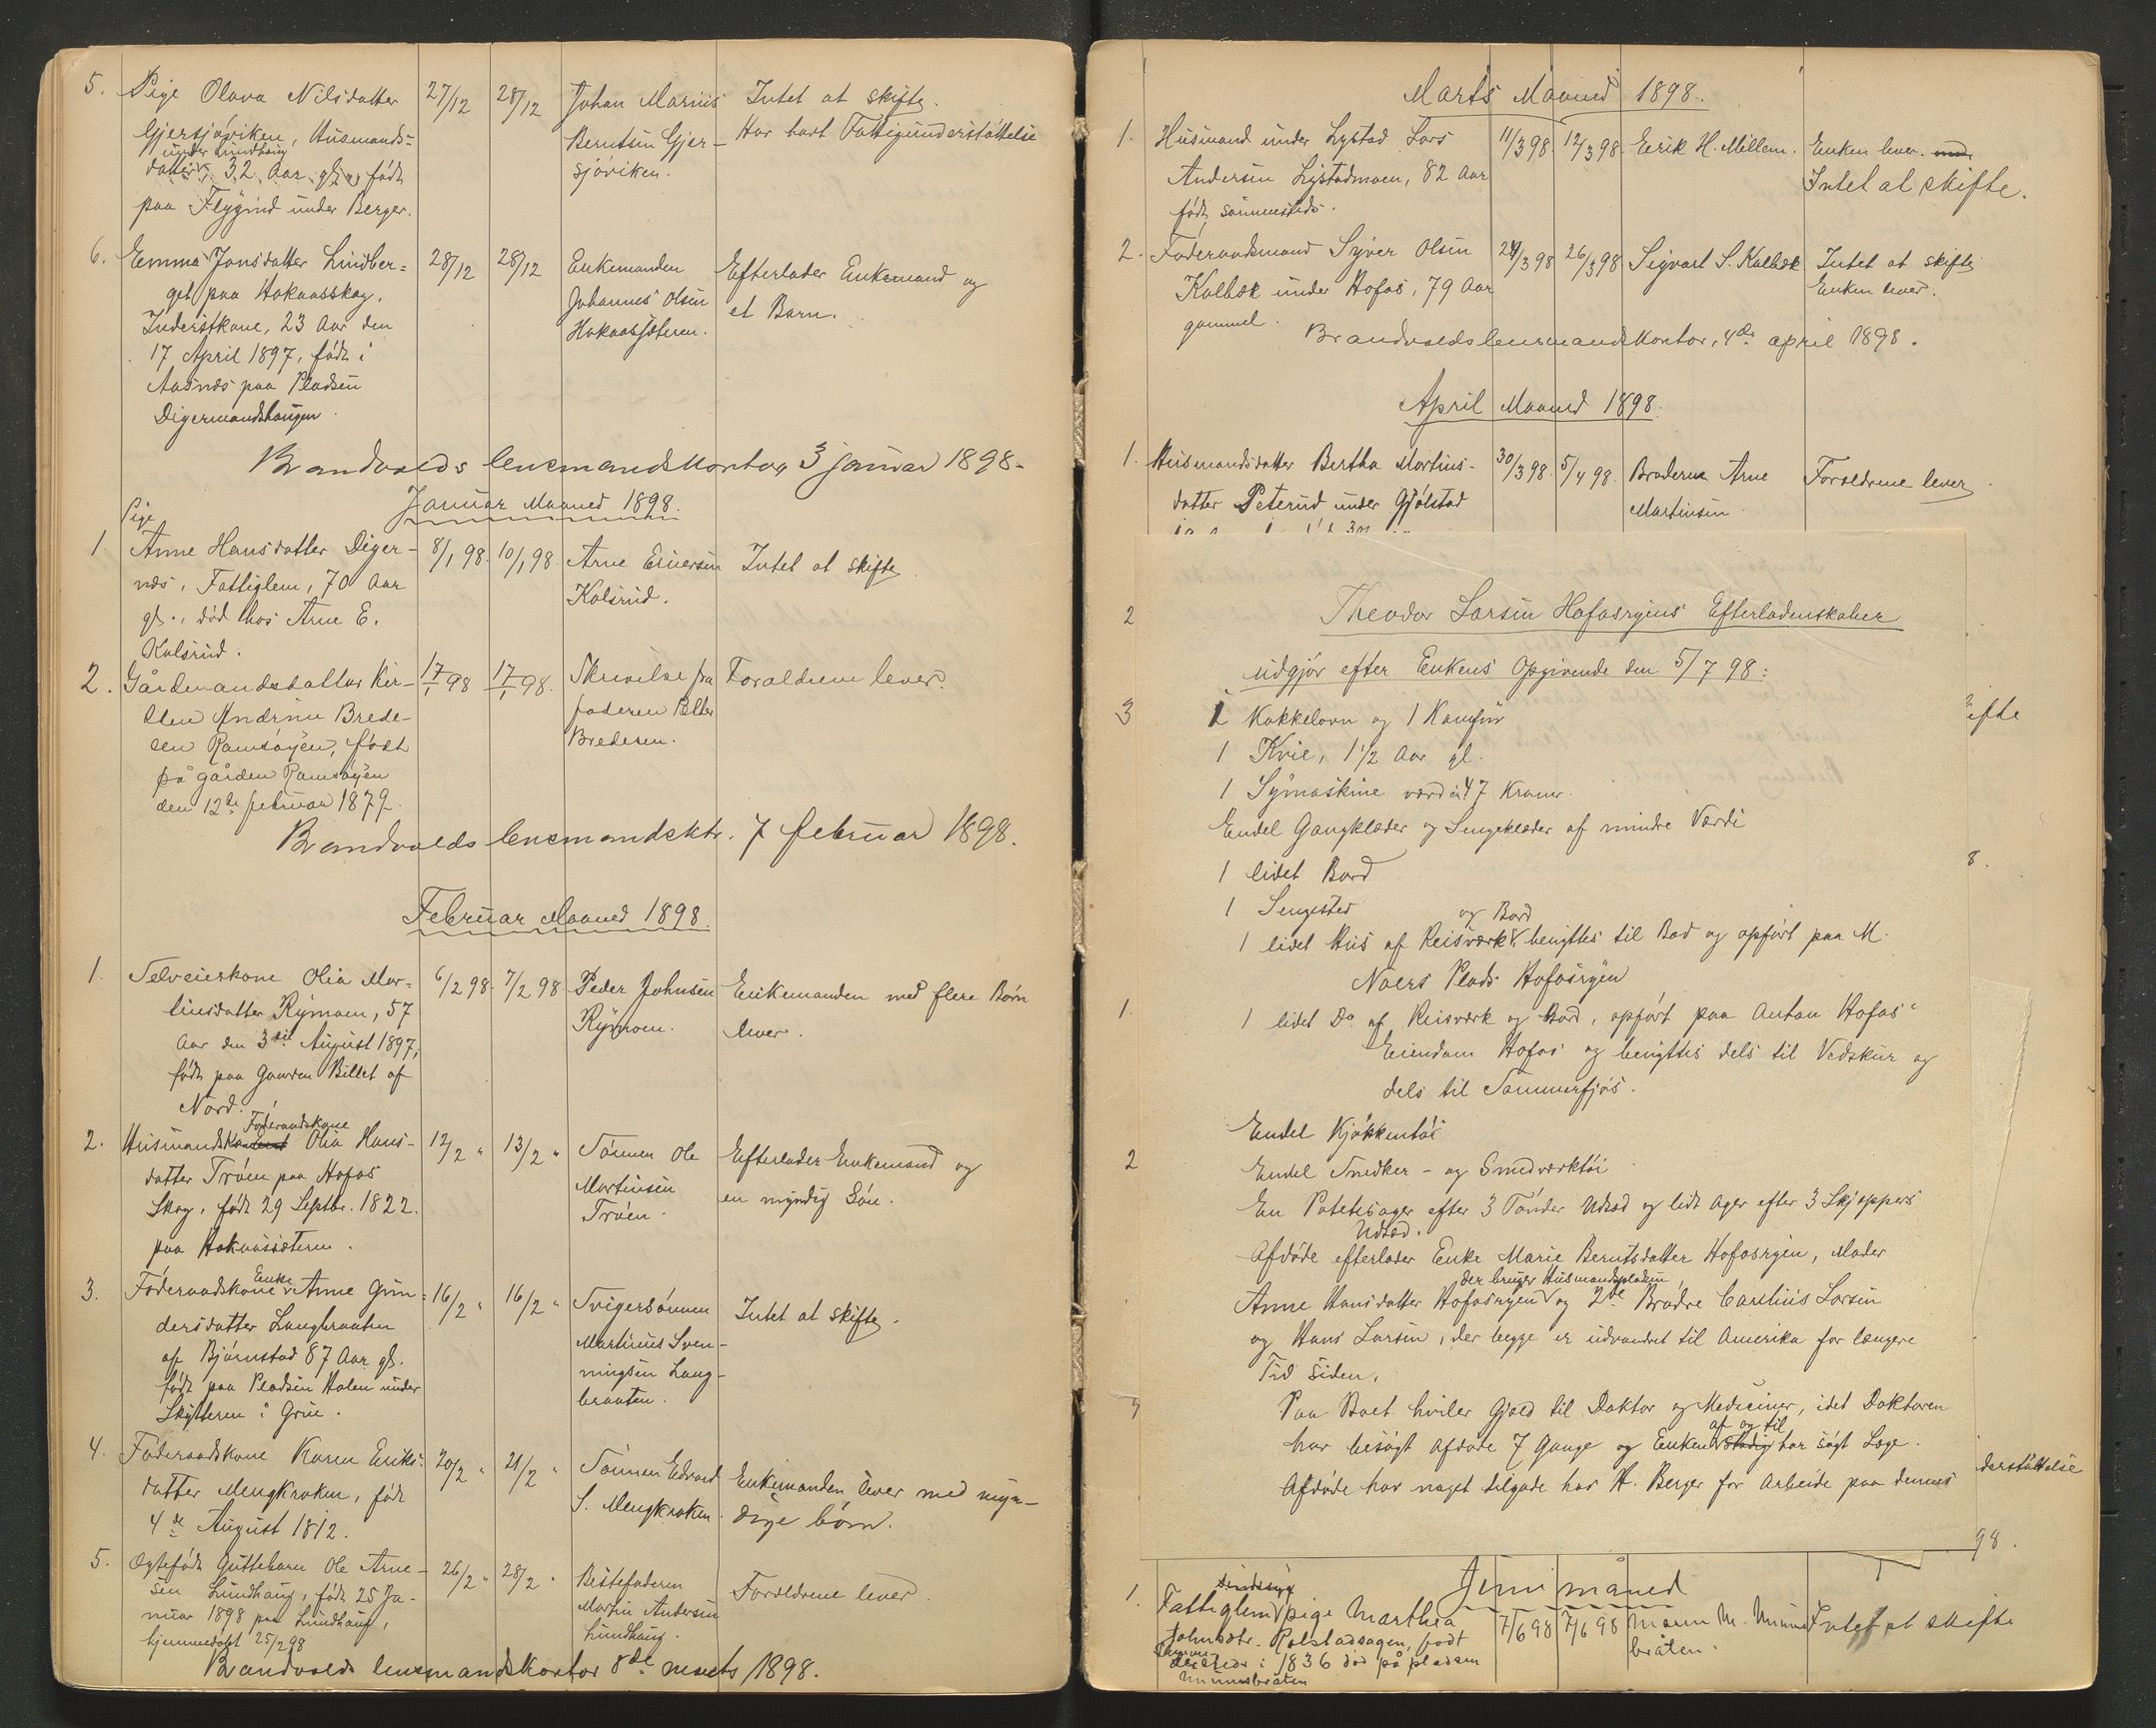 5. Pige Olava Nilsdatter 27/12 28/12 Johan Marius Intet at skifte.
Gjersjøviken, Husmands- Berntsen Gjer- Har havt Fattigunderstøttelse
under Lundhaug
datter, 32 Aar gl., født sjøviken.
paa Flygind under Berger.
6. Emma Jonsdatter Lindber- 28/12 28/12 Enkemanden Efterlader Enkemand og
get paa Hokaasskog. Johannes Olsen et Barn.
Inderstkone, 23 Aar den Hokaassæteren.
17 April 1897, født i
Aasnes paa Pladsen
Digermandshaugen.
Brandvolds lensmandskontor, 3 januar 1898.
Januar Maaned 1898.
Pige
1. Anne Hansdatter Diger- 8/1 98. 10/1 98 Arne Einersen Intet at skifte
næs, Fattiglem, 70 Aar Kolsrud.
gl., død hos Arne E.
Kolsrud.
2. Gårdmandsdatter Kir- 17/1 98 17/1 98. Skrivelse fra Foraldrene lever.
sten Andrine Brede- faderen Peter
sen Ramsøyen, født Bredesen.
på gården Ramsøyen
den 12te februar 1879.
Brandvolds lensmandsktr. 7 februar 1898.
Februar Maaned 1898.
1. Selveierkone Olia Mar- 6/2 98. 7/2 98 Peder Johnsen Enkemanden med flere Børn
tinsdatter Rymoen, 57 Rymoen. lever.
Aar den 3die August 1897,
født paa Gaarden Billet af
Nord.
Føderaadskone
2. Husmandskone Olia Hans- 12/2 " 13/2 " Sønnen Ole Efterlader Enkemand og
datter Trøen paa Hofos Martinsen en myndig Søn.
Skog, født 29 Septbr. 1822. Trøen.
paa Hokaassæteren.
Enke
3. Føderaadskone Anne Gun- 16/2 " 16/2 " Svigersønnen Intet at skifte.
dersdatter Langbraaten Martinus Sven-
af Bjørnstad 87 Aar gl. ningsen Lang-
født paa Pladsen Holen under braaten.
Skytteren i Grue.
4. Føderaadskone Karen Eriks- 20/2 " 21/2 " Sønnen Edvard Enkemanden lever med myn-
datter Mengkroken, født S. Mengkroken. dige børn.
4de August 1812.
5. Ægtefødt Guttebarn Ole Arne- 26/2 " 28/2 " Bestefaderen Forældrene lever.
sen Lundhaug, født 25 Ja- Martin Andersen
nuar 1898 paa Lundhaug, Lundhaug.
hjemmedøbt 25/2 98
Brandvolds lensmandskontor 8de marts 1898.
Marts Maaned 1898.
1. Husmand under Lystad Lars 11/3 98 12/3 98. Erik H. Millem. Enken lever.
Andersen Lystadmoen, 82 Aar Intet at skifte.
født sammesteds.
2. Føderaadsmand Syver Olsen 24/3 98 26/3 98 Sigvart S. Kalbæk Intet at skifte
Kalbæk under Hofos, 79 Aar Enken lever.
gammel.
Brandvolds lensmandskontor, 4de april 1898.
April Maaned 1898.
1. Husmandsdatter Bertha Martins- 30/3 98. 5/4 98 Broderen Arne Forældrene lever
datter Peterud under Gjølstad Martinsen
2
Theodor Larsen Hofosryens Efterladenskaber
udgjør efter Enkens Opgivende den 5/7 98:
3 1 Kakkelovn og 1 Komfur
ifte
1 Kvie, 1 1/2 Aar gl.
1 Symaskine værd 47 Kroner.
Endel Gangklæder og Sengeklæder af mindre Værdi
8.
1 lidet Bord
1 Sengested
og Bord
1 lidet Hus af Reisværk benyttes til Bod og opført paa M.
Noers Plads Hofosryen
1. 1 lidet Do af Reisværk og Bord, opført paa Anton Hofos'
Eiendom Hofos og benyttes dels til Vedskur og
dels til Sommerfjøs.
Endel Kjøkkentøi
2 Endel Snedker- og Smedværktøi
En Potetesager efter 3 Tønder Udsæd og lidt Ager efter 3 Skjæppers
Udsæd.
Afdøde efterlader Enke Marie Berntsdatter Hofosryen, Moder
der bruger Husmandspladsen,
Anne Hansdatter Hofosryen og 2de Brødre Carelius Larsen
og Hans Larsen, der begge er udvandret til Amerika for længere
Tid siden.
Paa Boet hviler Gjæld til Doktor og Mediciner, idet Doktoren
af og til
har besøgt Afdøde 7 Gange og Enken stadig har søgt Læge.
Afdøde har noget tilgode hos H. Berger for Arbeide paa dennes
derstøttelse
98.
Juni måned
sindssyg
1. Fattiglem pige Marthea 7/6 98 7/6 98 M. Intet at skifte
Johnsdtr. Polstadsagen, født bråten.
i 1836 død på pladsen